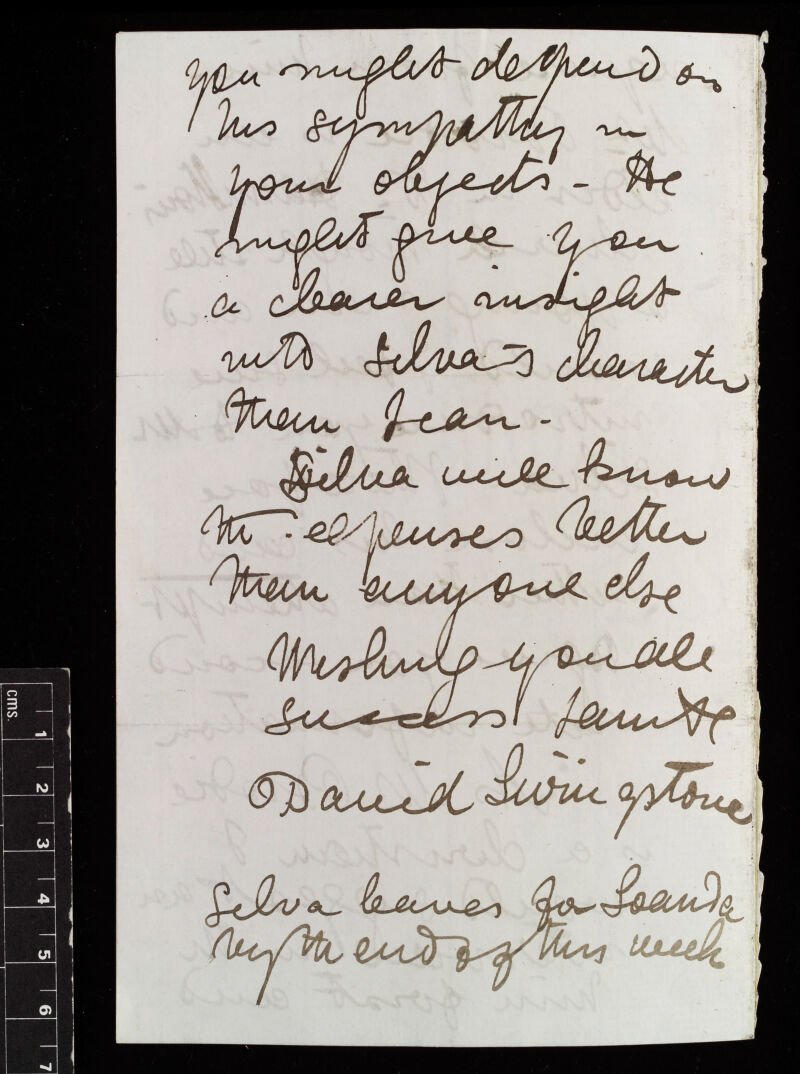 you might depend on
his sympathy in
your objects - He
might give you
a clearer insight
into Silva's character
than I can -
Silva will know
the expenses better
than anyone else
Wishing you all
success I am &c
David Livingstone
Silva leaves for Loanda
by the end of this week
cms.
1
2
3
4
5
6
7